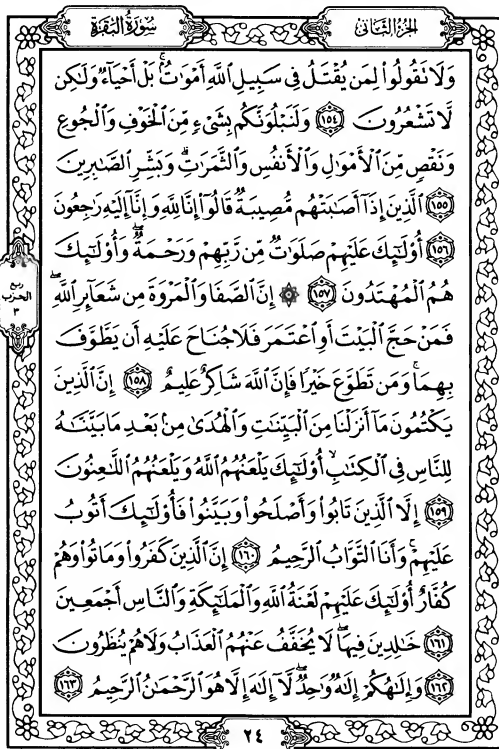 سُورَةُ البَقَرَةِ
الجزء الثانى
وَلَا تَقُولُوا۟ لِمَن يُقْتَلُ فِى سَبِيلِ ٱللَّهِ أَمْوَٰتٌۢ ۚ بَلْ أَحْيَآءٌ وَلَٰكِن
لَّا تَشْعُرُونَ ١٥٤ وَلَنَبْلُوَنَّكُم بِشَىْءٍ مِّنَ ٱلْخَوْفِ وَٱلْجُوعِ
وَنَقْصٍ مِّنَ ٱلْأَمْوَٰلِ وَٱلْأَنفُسِ وَٱلثَّمَرَٰتِ ۗ وَبَشِّرِ ٱلصَّٰبِرِينَ
١٥٥ ٱلَّذِينَ إِذَآ أَصَٰبَتْهُم مُّصِيبَةٌ قَالُوٓا۟ إِنَّا لِلَّهِ وَإِنَّآ إِلَيْهِ رَٰجِعُونَ
١٥٦ أُو۟لَٰٓئِكَ عَلَيْهِمْ صَلَوَٰتٌ مِّن رَّبِّهِمْ وَرَحْمَةٌ ۖ وَأُو۟لَٰٓئِكَ
هُمُ ٱلْمُهْتَدُونَ ١٥٧ ۞ إِنَّ ٱلصَّفَا وَٱلْمَرْوَةَ مِن شَعَآئِرِ ٱللَّهِ ۖ
فَمَنْ حَجَّ ٱلْبَيْتَ أَوِ ٱعْتَمَرَ فَلَا جُنَاحَ عَلَيْهِ أَن يَطَّوَّفَ
بِهِمَا ۚ وَمَن تَطَوَّعَ خَيْرًا فَإِنَّ ٱللَّهَ شَاكِرٌ عَلِيمٌ ١٥٨ إِنَّ ٱلَّذِينَ
يَكْتُمُونَ مَآ أَنزَلْنَا مِنَ ٱلْبَيِّنَٰتِ وَٱلْهُدَىٰ مِنۢ بَعْدِ مَا بَيَّنَّٰهُ
لِلنَّاسِ فِى ٱلْكِتَٰبِ ۙ أُو۟لَٰٓئِكَ يَلْعَنُهُمُ ٱللَّهُ وَيَلْعَنُهُمُ ٱللَّٰعِنُونَ
١٥٩ إِلَّا ٱلَّذِينَ تَابُوا۟ وَأَصْلَحُوا۟ وَبَيَّنُوا۟ فَأُو۟لَٰٓئِكَ أَتُوبُ
عَلَيْهِمْ ۚ وَأَنَا ٱلتَّوَّابُ ٱلرَّحِيمُ ١٦٠ إِنَّ ٱلَّذِينَ كَفَرُوا۟ وَمَاتُوا۟ وَهُمْ
كُفَّارٌ أُو۟لَٰٓئِكَ عَلَيْهِمْ لَعْنَةُ ٱللَّهِ وَٱلْمَلَٰٓئِكَةِ وَٱلنَّاسِ أَجْمَعِينَ
١٦١ خَٰلِدِينَ فِيهَا ۖ لَا يُخَفَّفُ عَنْهُمُ ٱلْعَذَابُ وَلَا هُمْ يُنظَرُونَ
١٦٢ وَإِلَٰهُكُمْ إِلَٰهٌ وَٰحِدٌ ۖ لَّآ إِلَٰهَ إِلَّا هُوَ ٱلرَّحْمَٰنُ ٱلرَّحِيمُ ١٦٣
ربع
الحزب
٣
٢٤